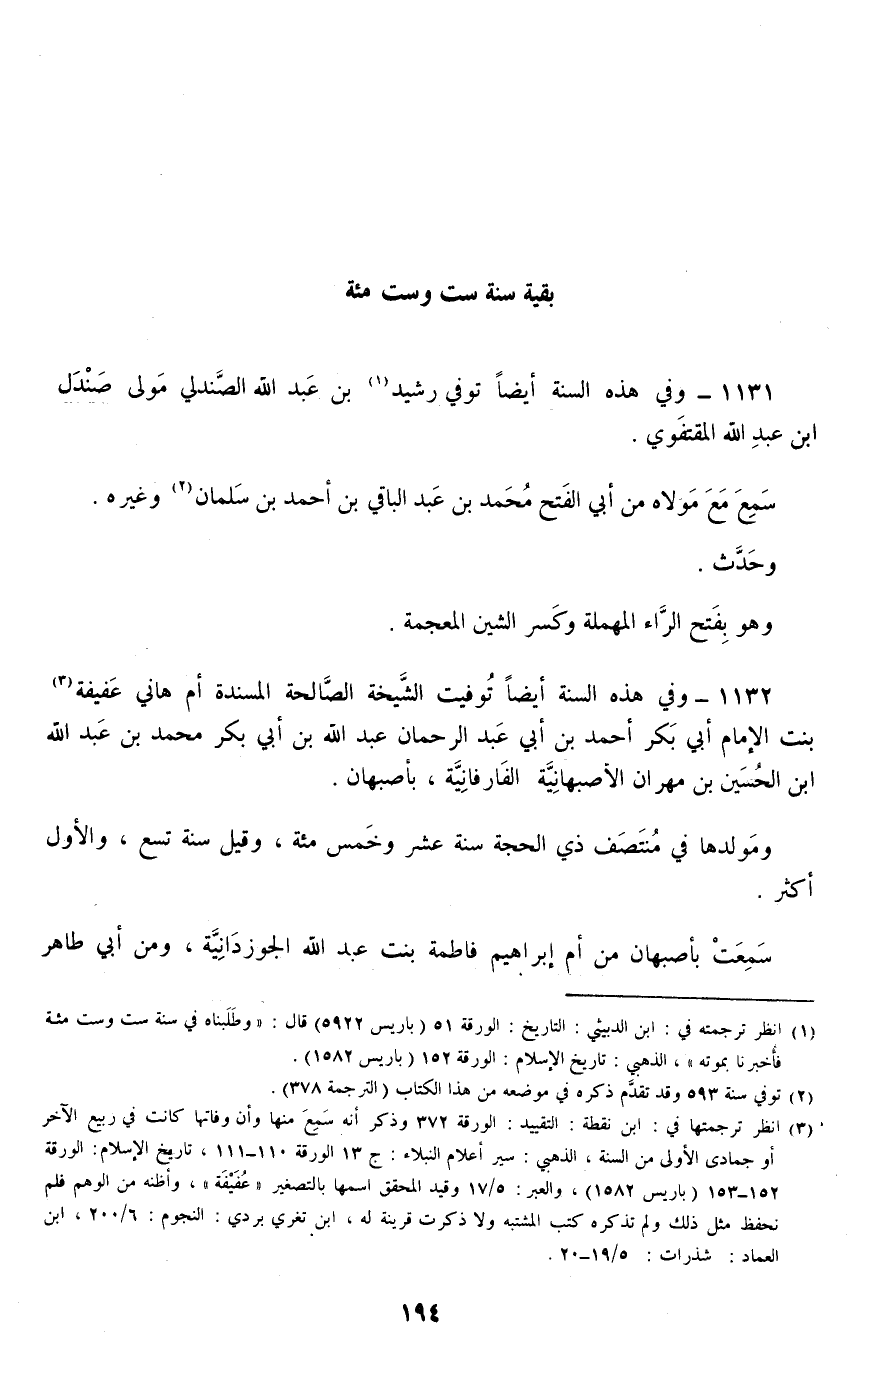 بقية سنة ست وست مئة
١١٣١ ـ وفي هذه السنة أيضاً توفي رشيد(١) بن عَبد الله الصَّندلي مَولى صَنْدَل
ابن عبدِ الله المقتفَوي .
سَمِعَ مَعَ مَوَلاه من أبي الفَتح مُحَمد بن عَبد الباقي بن أحمد بن سَلمان(٢) وغيره .
وحَدَّث .
وهو بِفَتح الرَّاء المهملة وكَسر الشين المعجمة .
١١٣٢ ـ وفي هذه السنة أيضاً تُوفيت الشَّيخة الصَّالحة المسندة أم هاني عَفيفة(٣)
بنت الإمام أبي بَكر أحمد بن أبي عَبد الرحمان عبد الله بن أبي بكر محمد بن عَبد الله
ابن الحُسَين بن مهران الأصبهانِيَّة الفَارفانِيَّة ، بأصبهان .
ومَولدها في مُنتَصَف ذي الحجة سنة عشر وخَمس مئة ، وقيل سنة تسع ، والأول
أكثر .
سَمِعَتْ بأصبهان من أم إبراهيم فاطمة بنت عبد الله الجوزدَانِيَّة ، ومن أبي طاهر
(١) انظر ترجمته في : ابن الدبيثي : التاريخ : الورقة ٥١ ( باريس ٥٩٢٢) قال : « وطَلَبناه في سنة ست وست مئة
فأخبرنا بموته » ، الذهبي : تاريخ الإسلام : الورقة ١٥٢ ( باريس ١٥٨٢) .
(٢) توفي سنة ٥٩٣ وقد تقدَّم ذكره في موضعه من هذا الكتاب ( الترجمة ٣٧٨) .
(٣) انظر ترجمتها في : ابن نقطة : التقييد : الورقة ٣٧٢ وذكر أنه سَمِعَ منها وأن وفاتها كانت في ربيع الآخر
أو جمادى الأولى من السنة ، الذهبي : سير أعلام النبلاء : ج ١٣ الورقة ١١٠ـ١١١ ، تاريخ الإسلام: الورقة
١٥٢ـ١٥٣ ( باريس ١٥٨٢) ، والعبر : ١٧/٥ وقيد المحقق اسمها بالتصغير « عُفَيْفَة » ، وأظنه من الوهم فلم
نحفظ مثل ذلك ولم تذكره كتب المشتبه ولا ذكرت قرينة له ، ابن تغري بردي : النجوم : ٢٠٠/٦ ، ابن
العماد : شذرات : ١٩/٥ـ٢٠ .
١٩٤